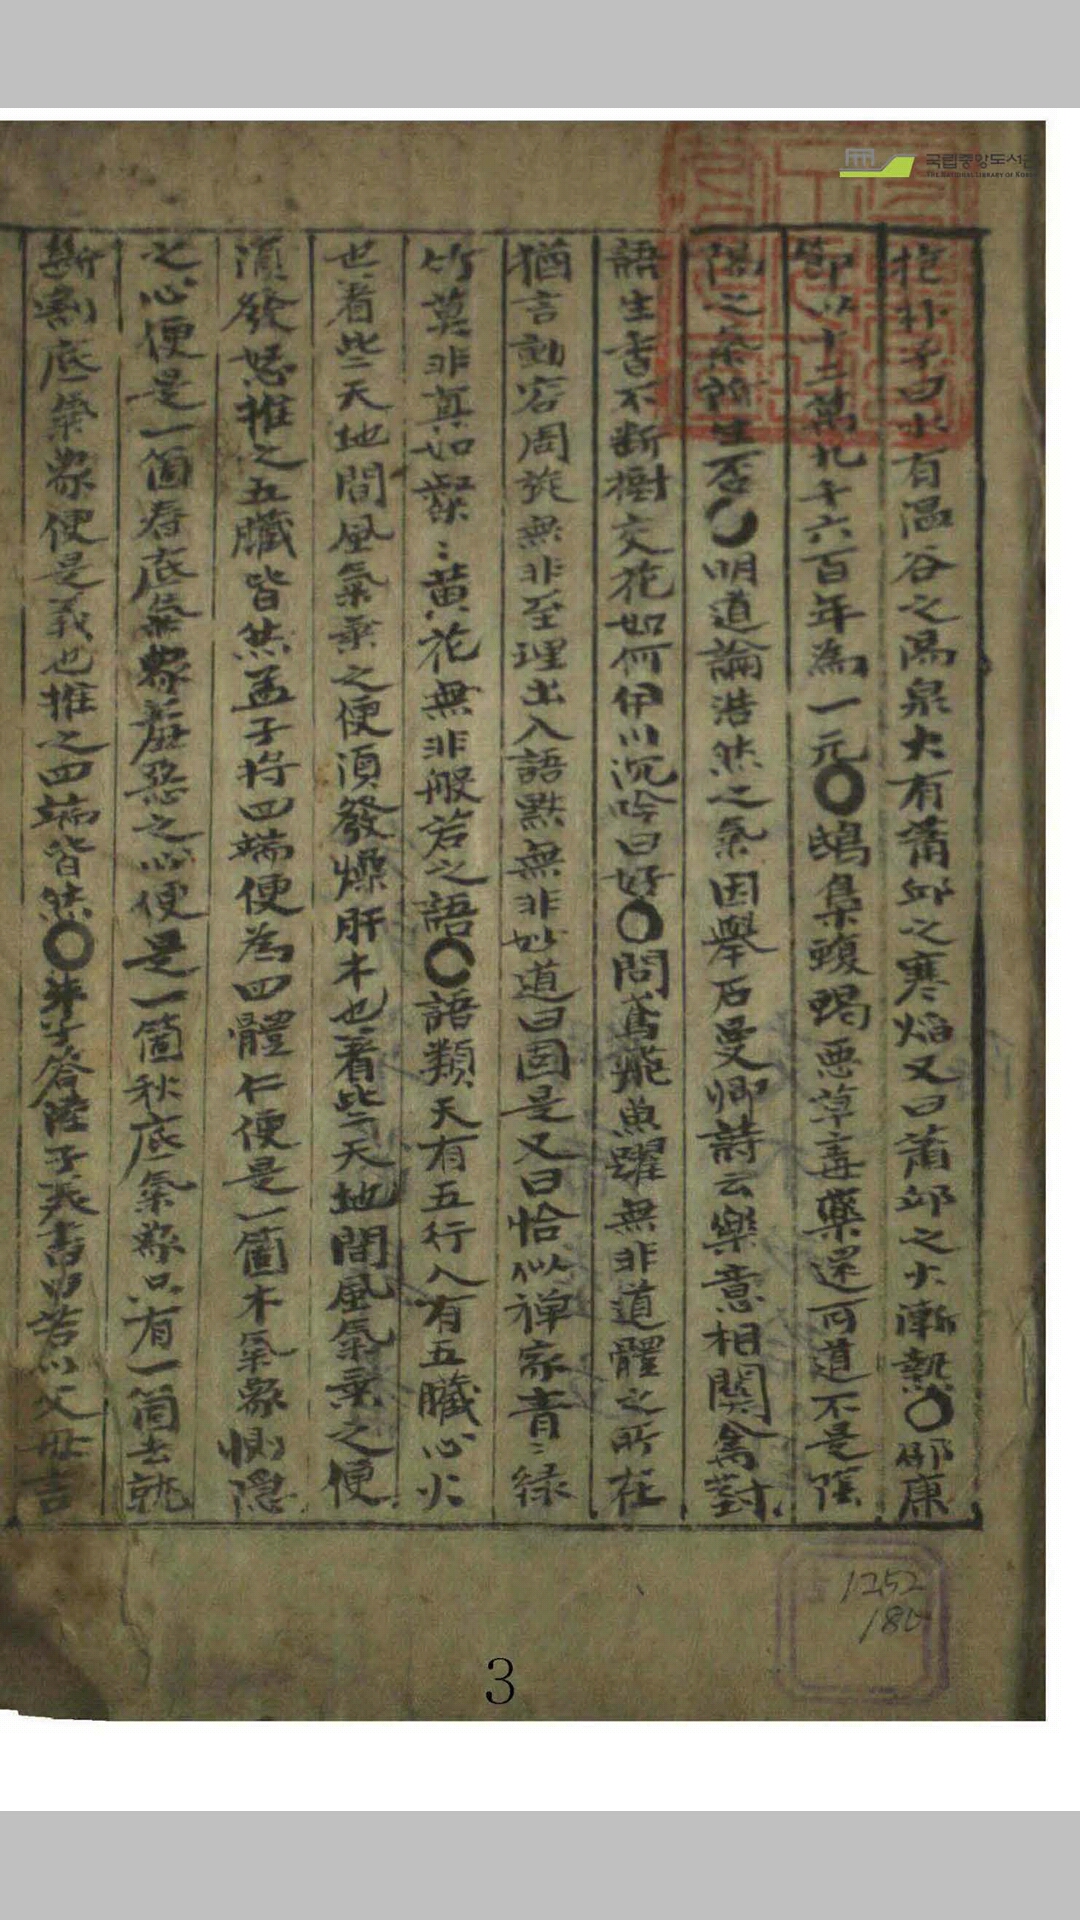 국립중앙도서관
THE NATIONAL LIBRARY OF KOREA
抱朴子曰水有溫谷之湯泉火有蕭邱之寒焰又曰蕭邱之火漸熱○邵康
節以十二萬九千六百年爲一元○鴟梟蝮蝎惡草毒藥還可道不是陰
陽之氣所生否○明道論浩然之氣因擧石曼卿詩云樂意相關禽對
語生香不斷樹交花如何伊川沉吟曰好○問鳶飛魚躍無非道體之所在
猶言動容周旋無非至理出入語默無非妙道曰固是又曰恰似禪家青〻綠
竹莫非眞如粲〻黃花無非般若之語○語類天有五行人有五臟心火
也着些天地間風氣乘之便須發燥肝木也着些天地間風氣乘之便
須發怒推之五臟皆然孟子將四端便爲四體仁便是一箇木氣象惻隱
之心便是一箇春底氣象羞惡之心便是一箇秋底氣象只有一箇去就
斷割底氣象便是義也推之四端皆然○朱子答陸子美書曰若以父母言
1252
3